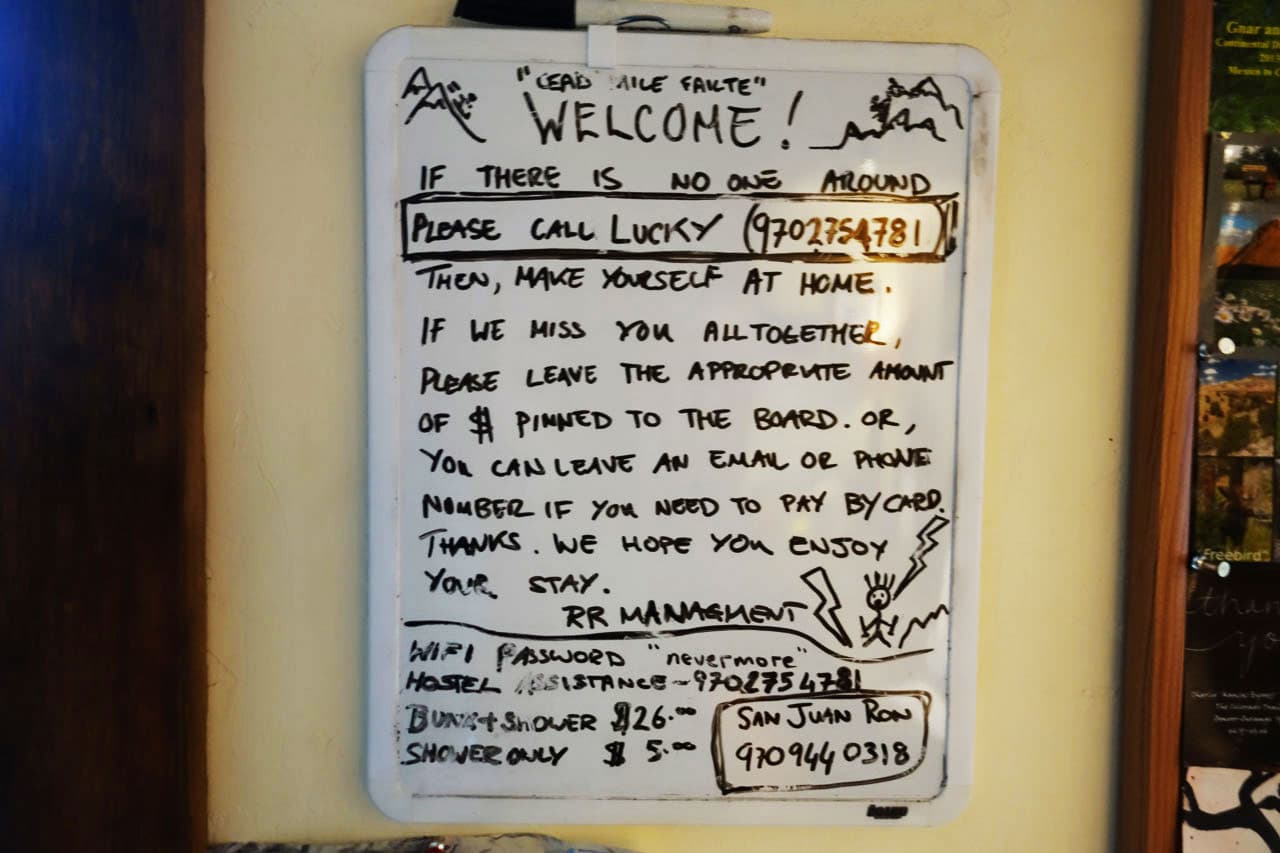 "CEAD MILE FAILTE"
WELCOME!
IF THERE IS NO ONE AROUND
PLEASE CALL LUCKY (9702754781)!
THEN, MAKE YOURSELF AT HOME.
IF WE MISS YOU ALLTOGETHER,
PLEASE LEAVE THE APPROPRIATE AMOUNT
OF $ PINNED TO THE BOARD. OR,
YOU CAN LEAVE AN EMAIL OR PHONE
NUMBER IF YOU NEED TO PAY BY CARD.
THANKS. WE HOPE YOU ENJOY
YOUR STAY.
RR MANAGMENT
WIFI PASSWORD "nevermore"
HOSTEL ASSISTANCE - 9702754781
BUNK + SHOWER $26.00
SHOWER ONLY $ 5.00
SAN JUAN RON
970 944 0318
Gnar an
Continental
201
Mexico to
"Freebird"